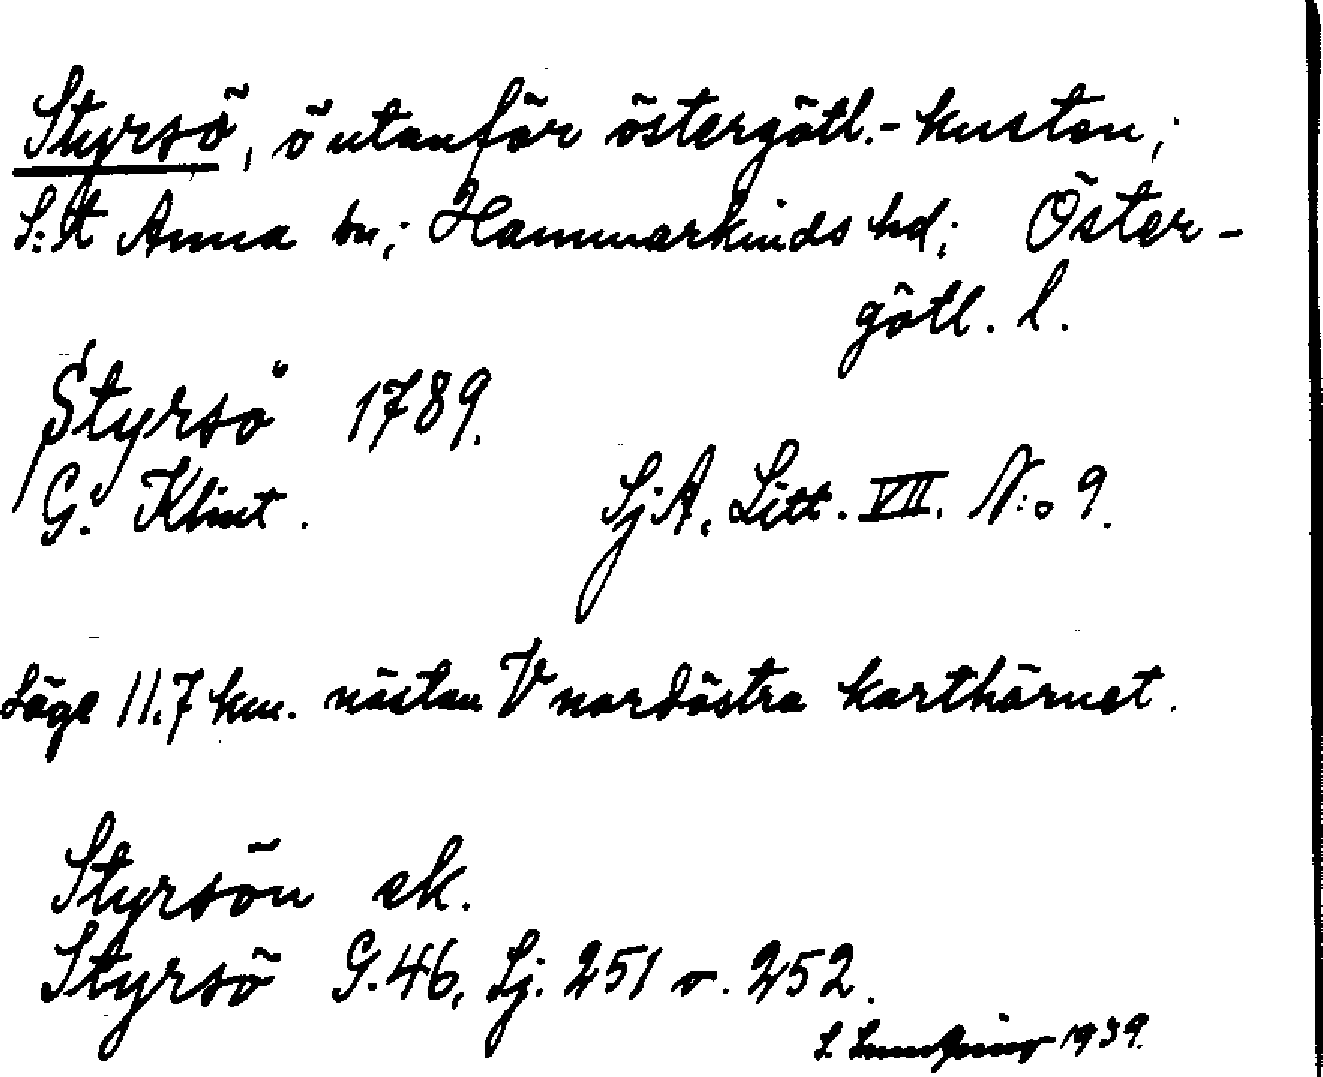 Styrsö, ö utanför östergötl.-kusten;
S:t Anna sn; Hammarkinds hd; Öster-
götl. l.
Styrsö 1789.
G. Klint. SjA. Litt. VII. N:o 9.
Läge 11.7 km. nästan V nordöstra karthörnet.
Styrsön ek.
Styrsö G.46, Sj. 251 o. 252.
S. 1939.